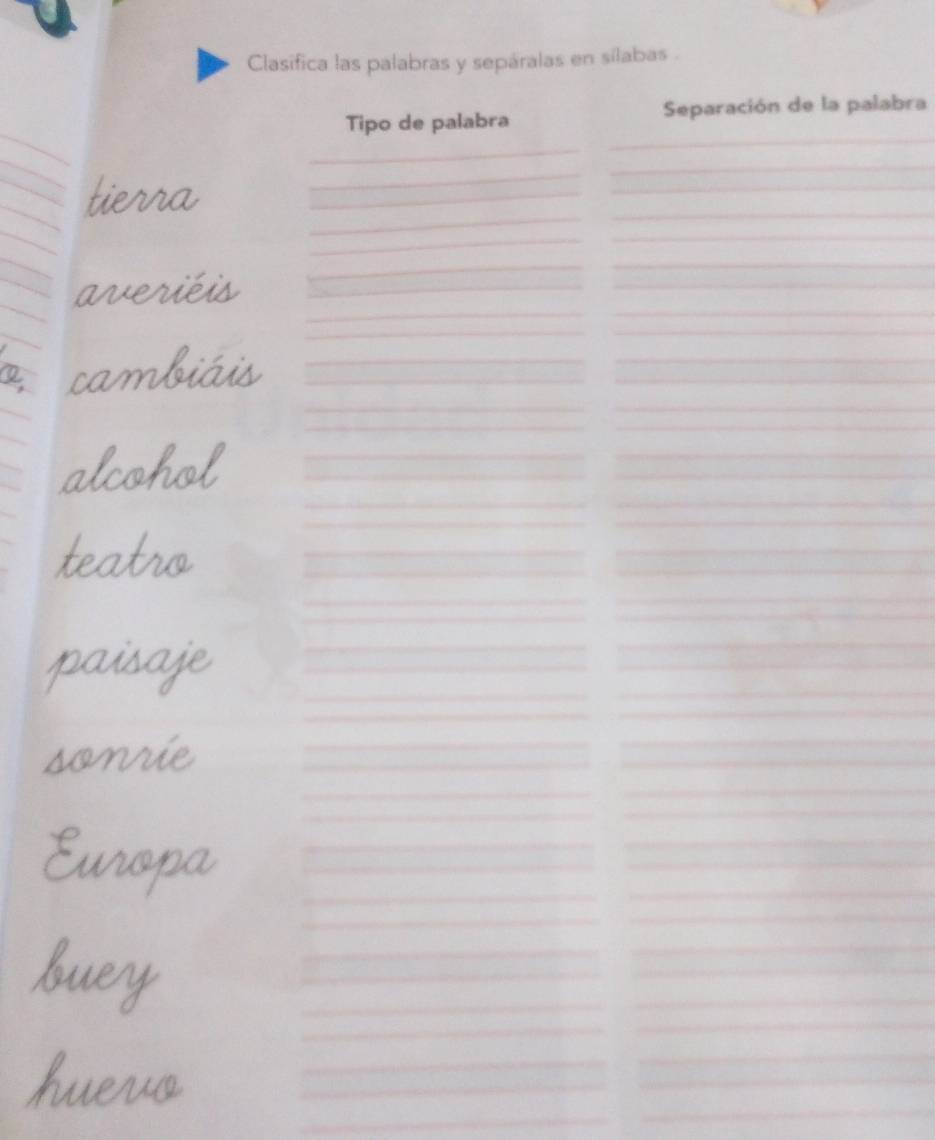 Clasifica las palabras y sepáralas en sílabas .
Tipo de palabra
Separación de la palabra
tierra
averiéis
cambiáis
alcohol
teatro
paisaje
sonríe
Europa
buey
huevo